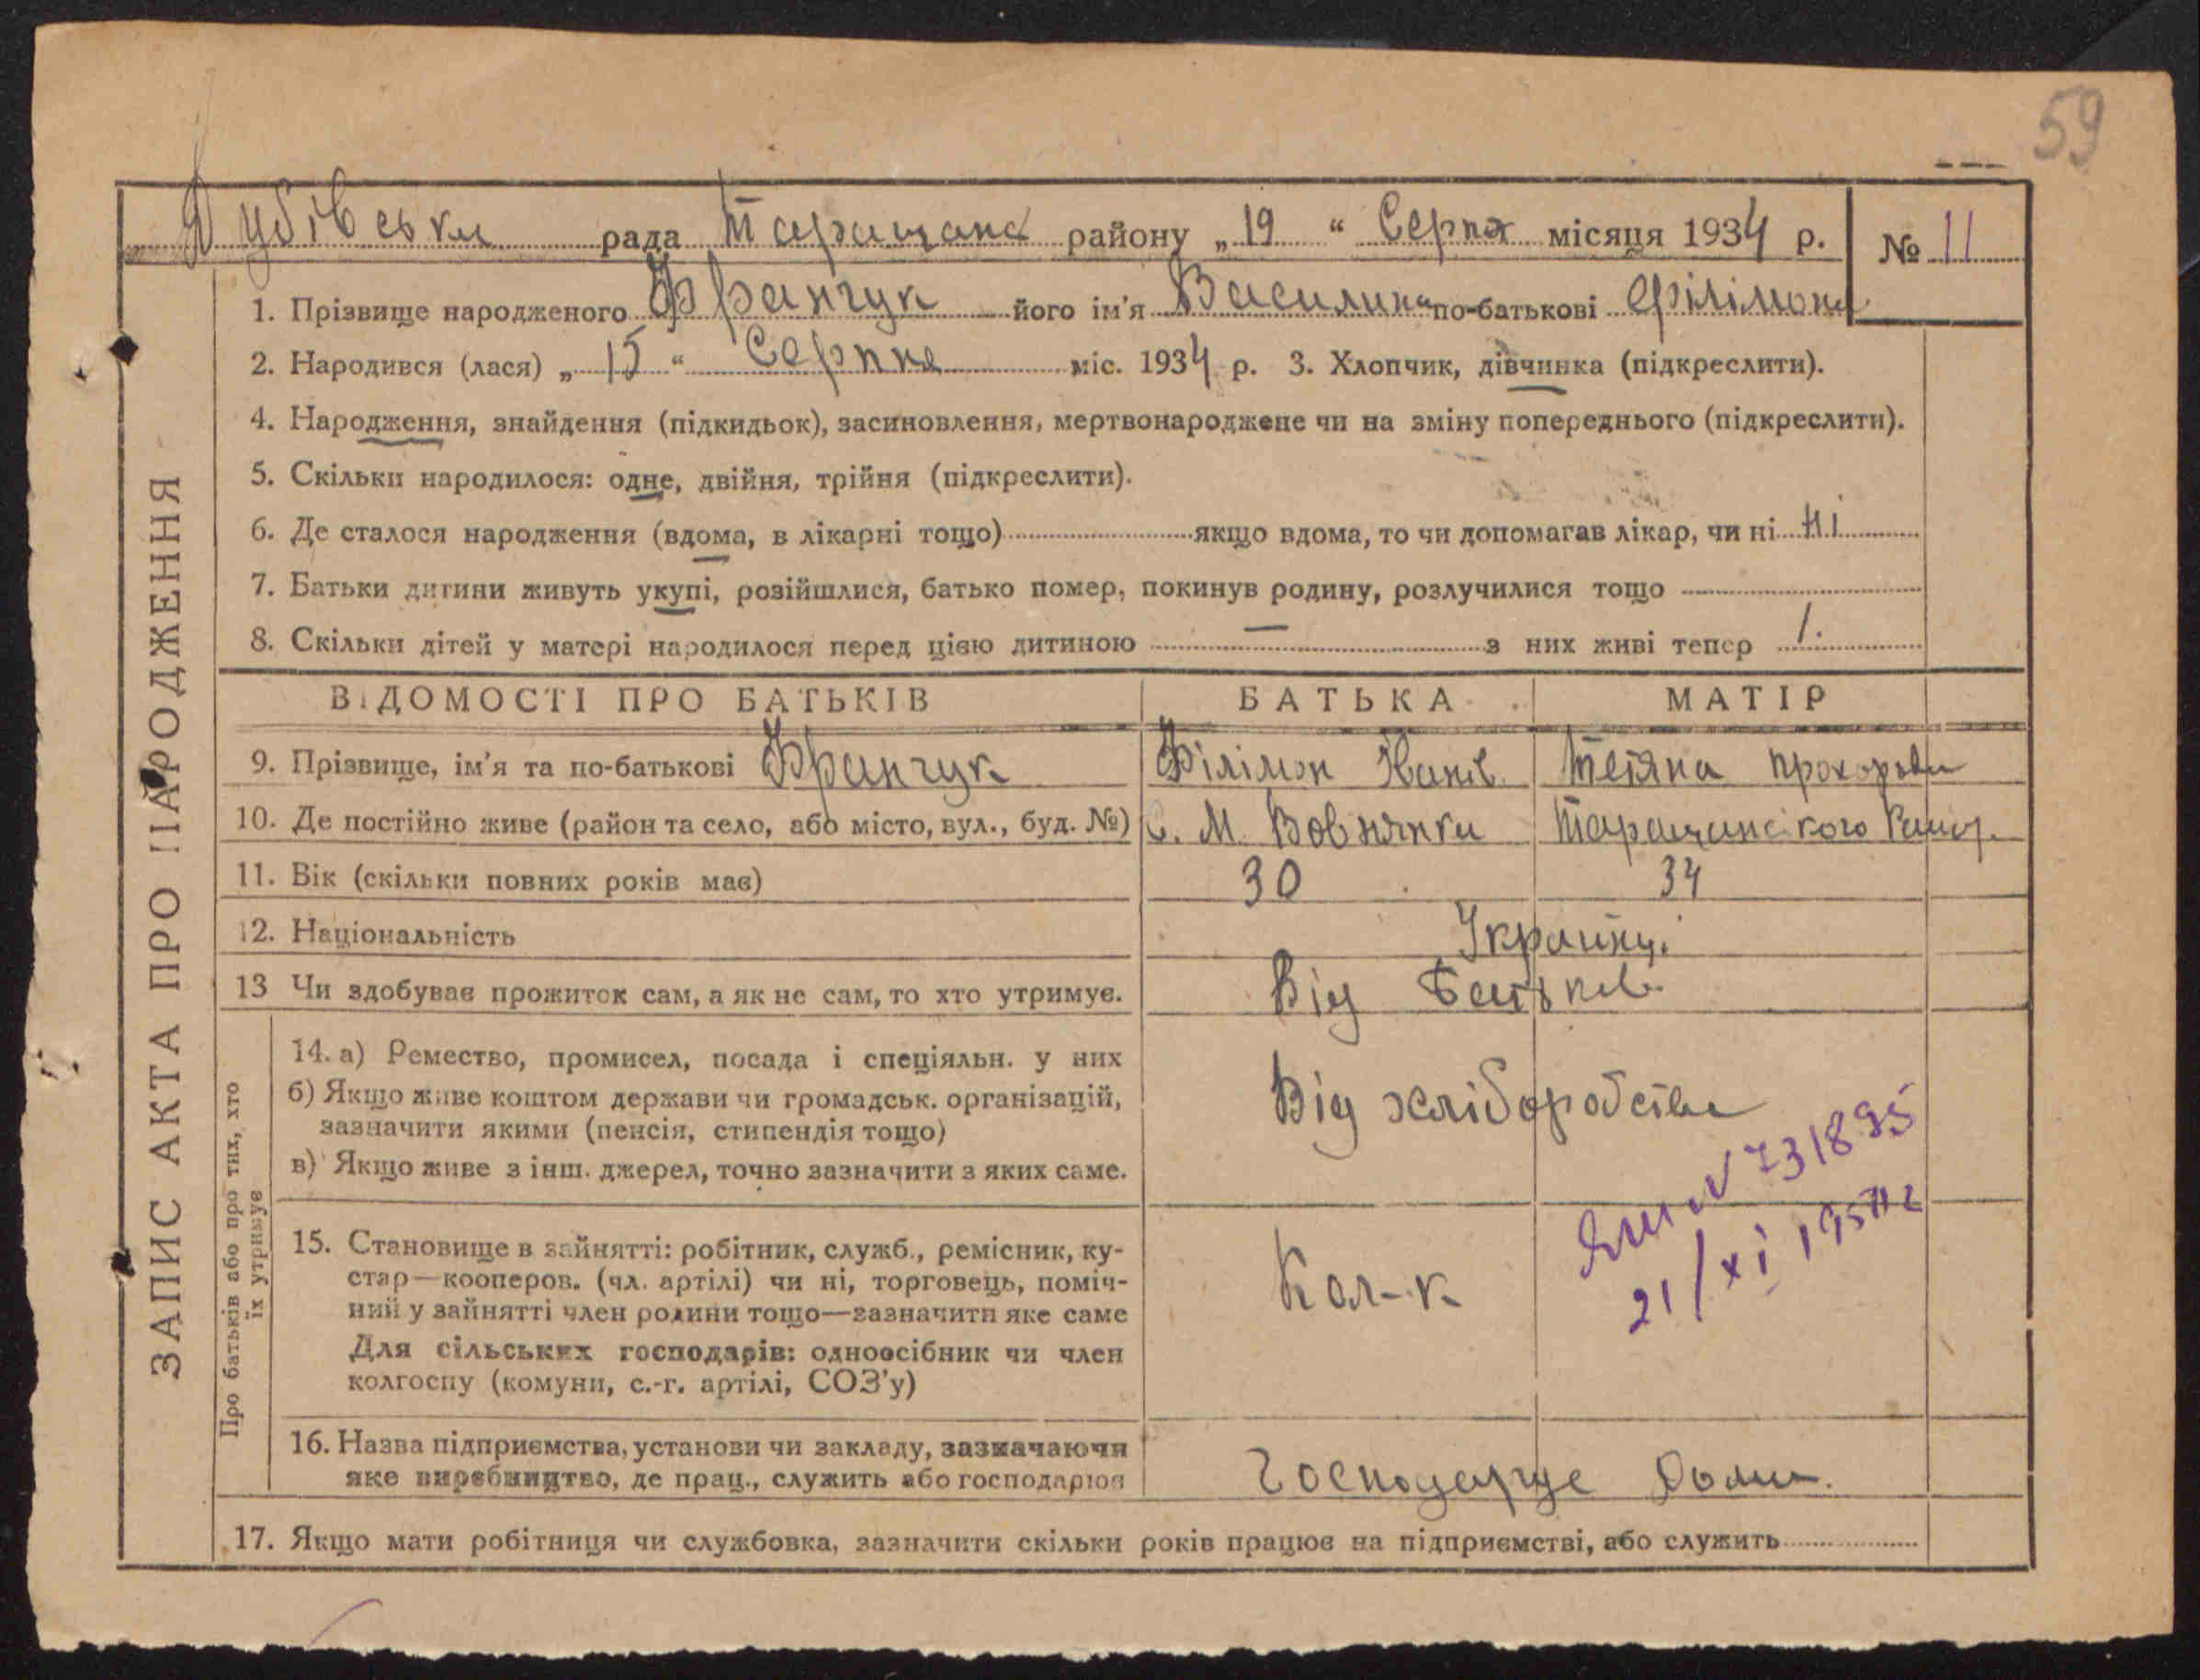 59
Дубівська рада Таращана району „19“ Серпня місяця 1934 р. № 11
ЗАПИС АКТА ПРО НАРОДЖЕННЯ
1. Прізвище народженого Франчук його ім'я Василина по-батькові Філімона
2. Народився (лася) „15“ Серпня міс. 1934 р. 3. Хлопчик, дівчинка (підкреслити).
4. Народження, знайдення (підкидьок), засиновлення, мертвонароджене чи на зміну попереднього (підкреслити).
5. Скільки народилося: одне, двійня, трійня (підкреслити).
6. Де сталося народження (вдома, в лікарні тощо) якщо вдома, то чи допомагав лікар, чи ні ні
7. Батьки дитини живуть укупі, розійшлися, батько помер, покинув родину, розлучилися тощо
8. Скільки дітей у матері народилося перед цією дитиною — з них живі тепер 1.
ВІДОМОСТІ ПРО БАТЬКІВ БАТЬКА МАТІР
9. Прізвище, ім'я та по-батькові Франчук Філімон Іванів Тетяна Прохорова
10. Де постійно живе (район та село, або місто, вул., буд. №) С. М. Вовнянка Таращанського
11. Вік (скільки повних років має) 30 34
12. Національність Українці
13 Чи здобуває прожиток сам, а як не сам, то хто утримує. Від Батьків
Про батьків або про тих, хто
їх утримує
14. а) Ремество, промисел, посада і спеціяльн. у них
б) Якщо живе коштом держави чи громадськ. організацій,
зазначити якими (пенсія, стипендія тощо)
в) Якщо живе з інш. джерел, точно зазначити з яких саме.
Від хліборобства
№ 731895
21/XI 195
15. Становище в зайнятті: робітник, служб., ремісник, ку-
стар—кооперов. (чл. артілі) чи ні, торговець, поміч-
ний у зайнятті член родини тощо—зазначити яке саме
Для сільських господарів: одноосібник чи член
колгоспу (комуни, с.-г. артілі, СОЗ'у)
Кол-к
16. Назва підприємства, установи чи закладу, зазначаючи
яке виребництво, де прац., служить або господарює
Господарує Дома.
17. Якщо мати робітниця чи службовка, зазначити скільки років працює на підприємстві, або служить